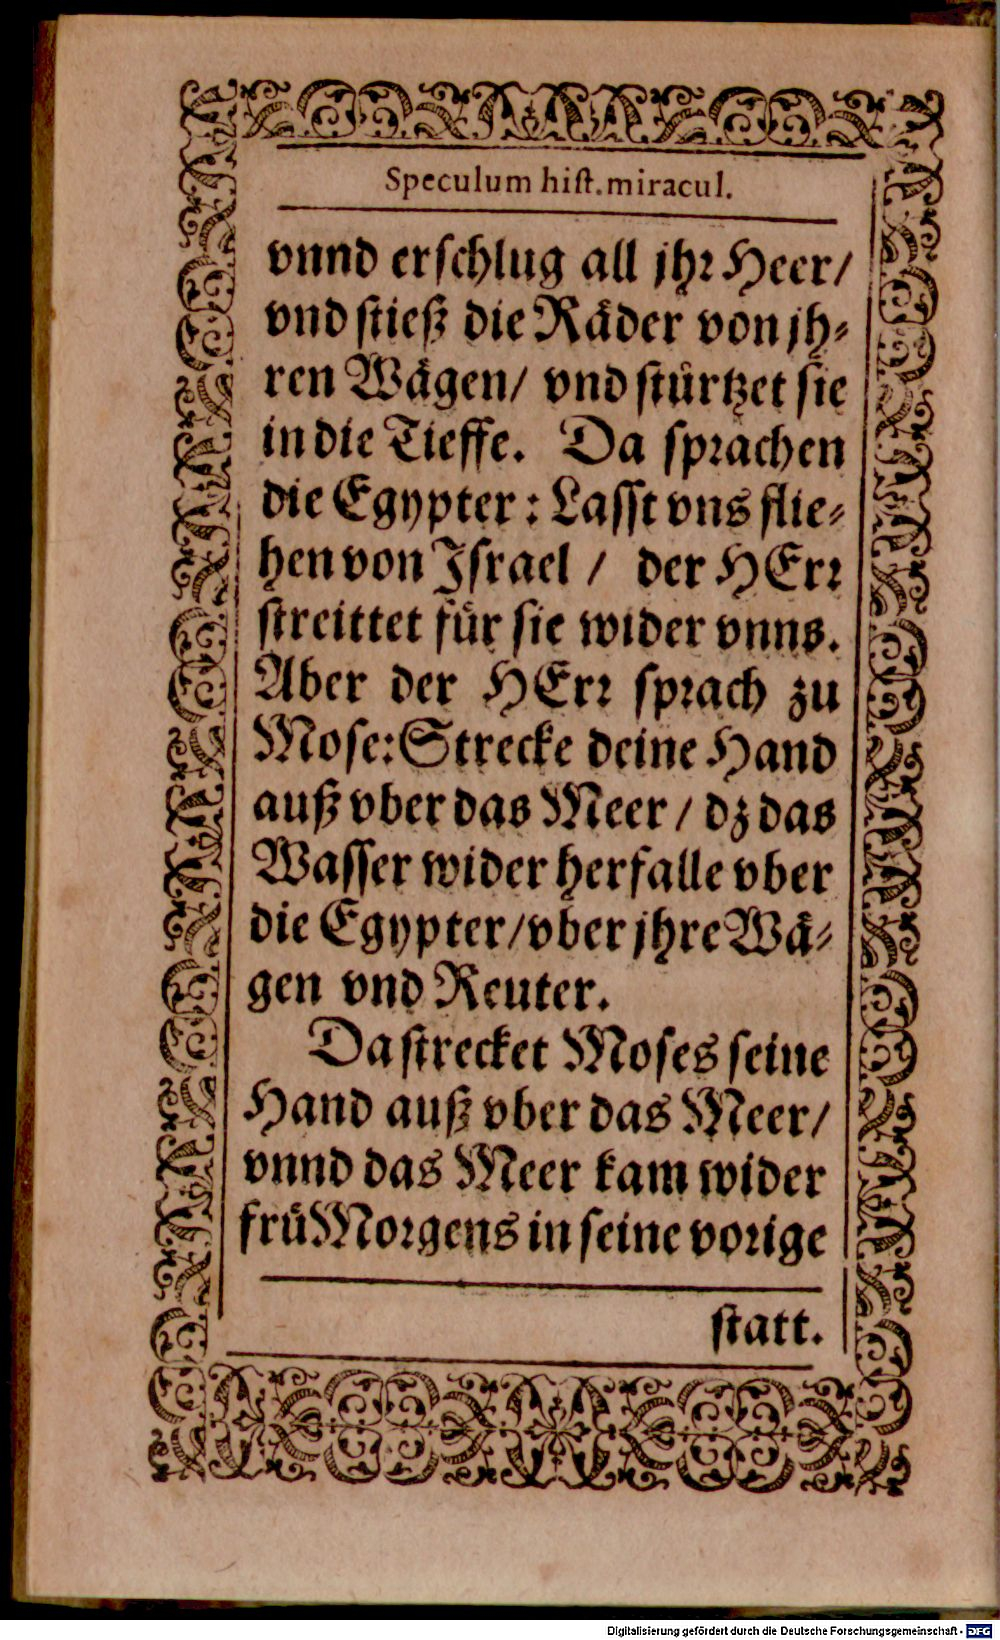 Speculum hiſt. miracul.
vnnd erſchlug all jhr Heer/
vnd ſtieß die Räder von jh-
ren Wägen/ vnd ſtürtzet ſie
in die Tieffe. Da ſprachen
die Egypter: Laſſt vns flie-
hen von Iſrael / der HErr
ſtreittet für ſie wider vnns.
Aber der HErr ſprach zu
Moſe: Strecke deine Hand
auß vber das Meer / dz das
Waſſer wider herfalle vber
die Egypter/ vber jhre Wä-
gen vnd Reuter.
Da ſtrecket Moſes ſeine
Hand auß vber das Meer/
vnnd das Meer kam wider
frü Morgens in ſeine vorige
ſtatt.
Digitalisierung gefördert durch die Deutsche Forschungsgemeinschaft - DFG